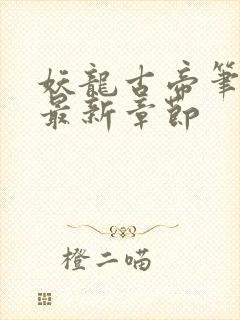 妖龍古帝筆
最新章節
橙二喵